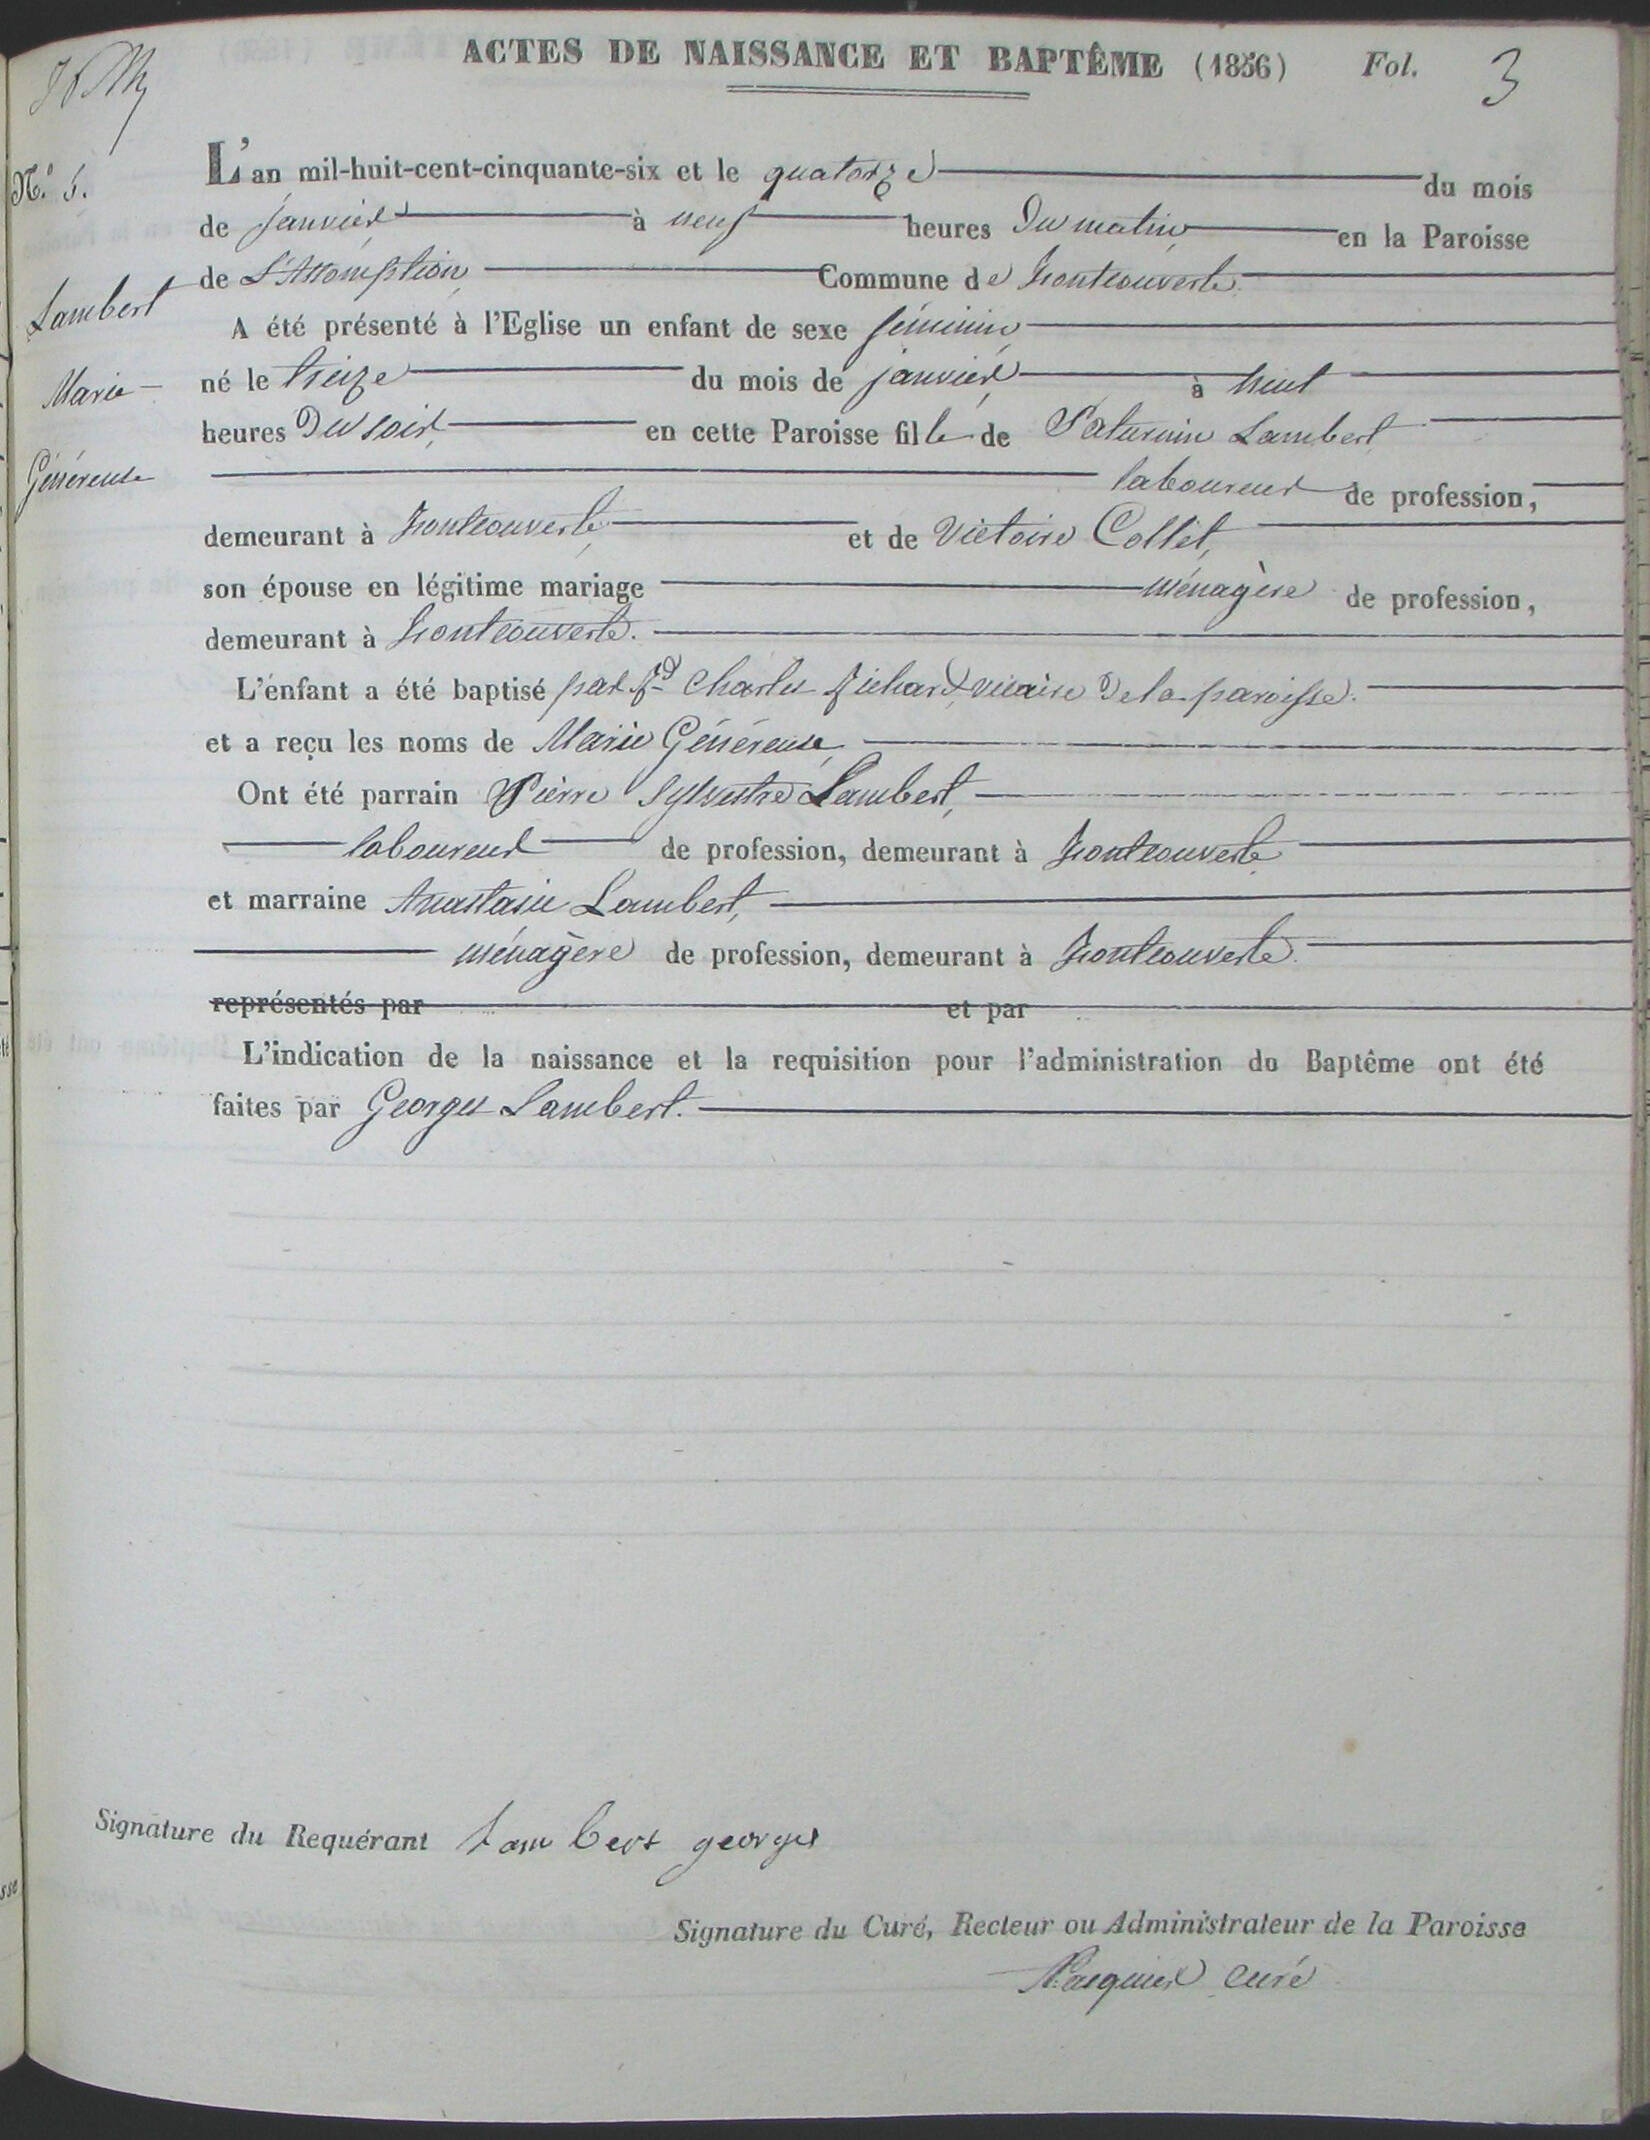 ACTES DE NAISSANCE ET BAPTÊME (1856) Fol. 3
N.° 5.
Lambert
Marie
Généreuse
L'an mil-huit-cent-cinquante-six et le quatorze du mois
de janvier à neuf heures du matin en la Paroisse
de L'Assomption Commune de Fontcouverte
A été présenté à l'Eglise un enfant de sexe féminin
né le treize du mois de janvier, à huit
heures du soir, en cette Paroisse fille de Saturnin Lambert
laboureur de profession,
demeurant à Fontcouverte, et de Victoire Collet,
son épouse en légitime mariage ménagère de profession,
demeurant à Fontcouverte.
L'enfant a été baptisé par Charles Richard, vicaire de la paroisse.
et a reçu les noms de Marie Généreuse,
Ont été parrain Pierre Sylvestre Lambert,
laboureur de profession, demeurant à Fontcouverte
et marraine Anastasie Lambert,
ménagère de profession, demeurant à Fontcouverte.
représentés par et par
L'indication de la naissance et la requisition pour l'administration du Baptême ont été
faites par Georges Lambert.
Signature du Requérant Lambert georges
Signature du Curé, Recteur ou Administrateur de la Paroisse
Pasquier curé